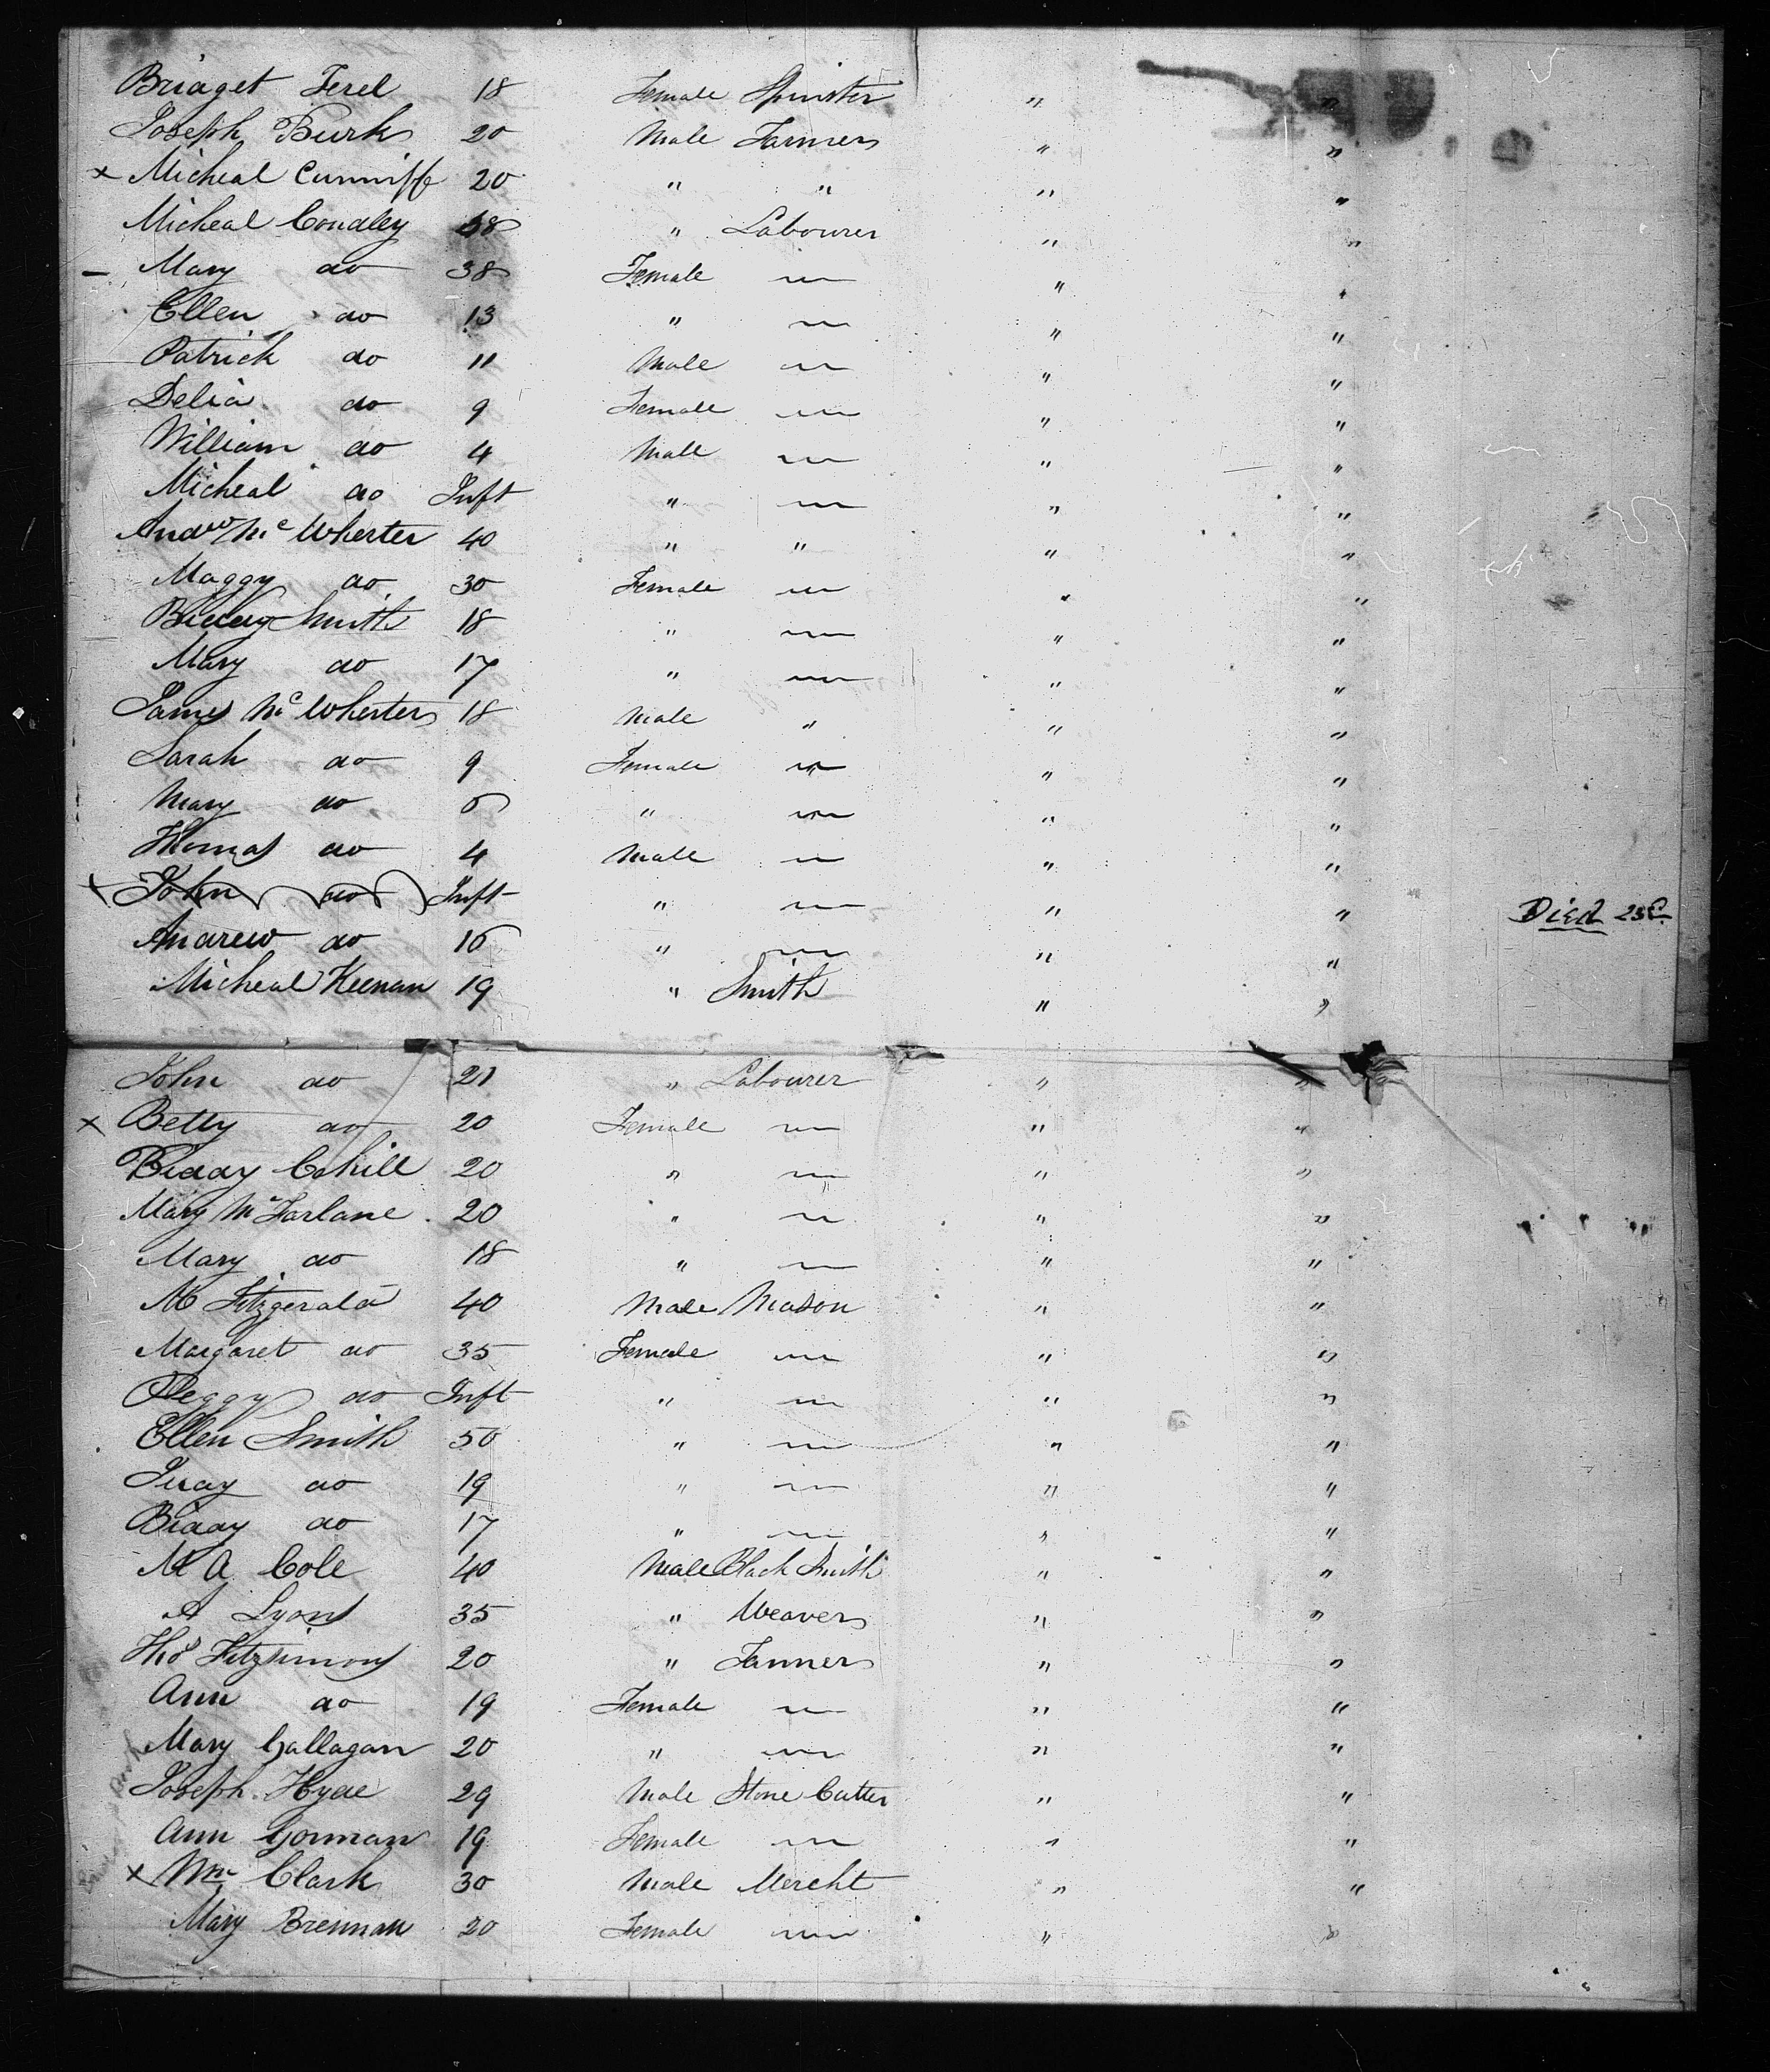 Bridget Ferel 18 Female Spinster " "
Joseph Burk 20 Male Farmer " "
x Micheal Cunniff 20 " " " "
Micheal Coudley 38 " Labourer " "
– Mary do 38 Female " "
Ellen do 13 " " "
Patrick do 11 Male " "
Delia do 9 Female " "
William do 4 Male " "
Micheal do Inft " " "
Andw Mc Wherter 40 " " " "
Maggy do 30 Female " "
Biddy Smith 18 " " "
Mary do 17 " " "
James Mc Wherter 18 Male " " "
Sarah do 9 Female " "
Mary do 6 " " "
Thomas do 4 Male " "
x John do Inft " " " Died
Andrew do 16 " " "
Micheal Keenan 19 " Smith " "
John do 21 " Labourer " "
x Betty do 20 Female " "
Biddy Cahill 20 " " "
Mary McFarlane 20 " " "
Mary do 18 " " "
M Fitzgerald 40 Male Mason " "
Margaret do 35 Female " "
Peggy do Inft " " "
Ellen Smith 50 " " "
Judy do 19 " " "
Biddy do 17 " " "
M A Cole 40 Male Black Smith " "
A Lyons 35 " Weaver " "
Thos Fitzsimons 20 " Farmer " "
Ann do 19 Female " "
Mary Gallagan 20 " " "
Joseph Hyde 29 Male Stone Cutter " "
Ann Gorman 19 Female " "
x Wm Clark 30 Male Mercht " "
Mary Brennan 20 Female " "